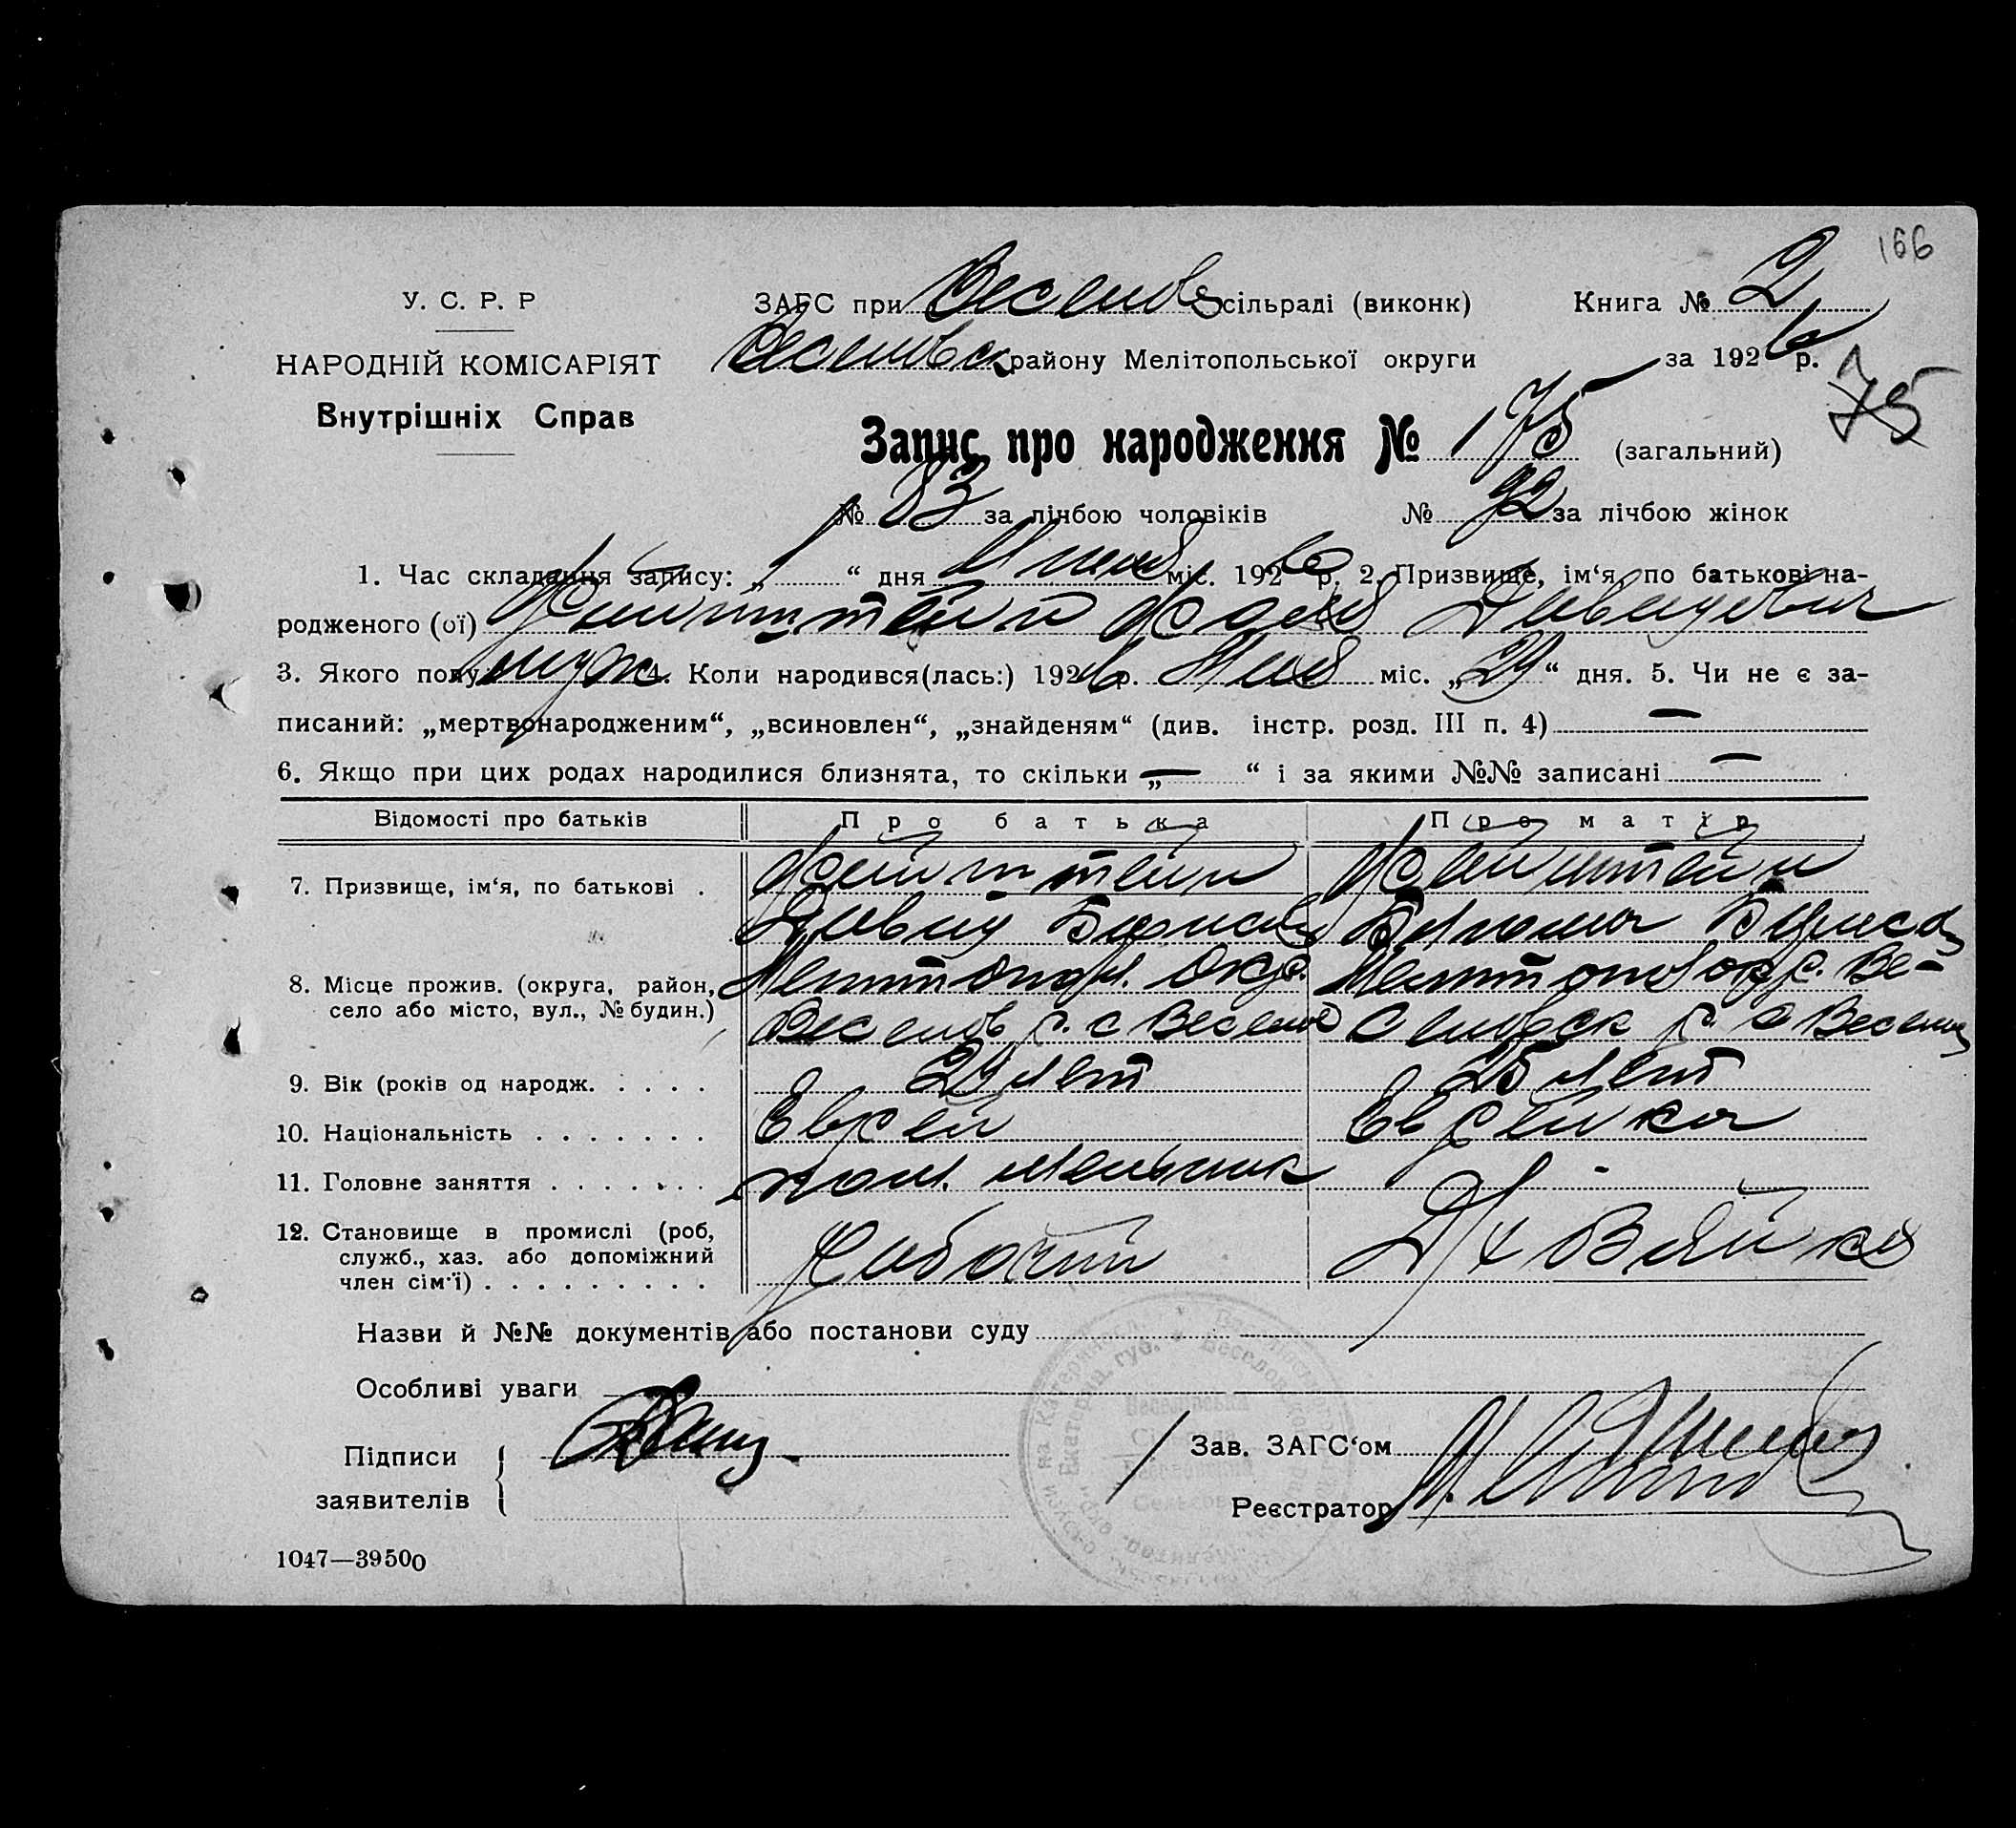 166
У. С. Р. Р
ЗАГС при Веселовс сільраді (виконк)
Книга № 2
НАРОДНІЙ КОМІСАРІЯТ
Веселовск району Мелітопольської округи
за 1926 р.
Внутрішніх Справ
75
Запис про народження № 175 (загальний)
№ 83 за лічбою чоловіків
№ 92 за лічбою жінок
1. Час складання запису: „ 1 “ дня міс. 1926 р. 2. Призвище, ім‘я, по батькові на-
родженого (ої) Давидович
3. Якого полу муж 4. Коли народився(лась:) 1926 р. Мая міс. „29“ дня. 5. Чи не є за-
писаний: „мертвонародженим“, „всиновлен“, „знайденям“ (див. інстр. розд. III п. 4) —
6. Якщо при цих родах народилися близнята, то скільки „—“ і за якими №№ записані —
Відомості про батьків
Про батька
Про матір
7. Призвище, ім‘я, по батькові .
Давид Борисов
Борисов
8. Місце прожив. (округа, район,
село або місто, вул., № будин.)
Мелитопол. окр.
Веселов р. с Веселое
Мелитопол окр. Ве-
селовск р. с Веселое
9. Вік (років од народж. . . . .
29 лет
25 лет
10. Національність . . . . . . .
Еврей
Еврейка
11. Головне заняття . . . . . . .
пом. мельник
-
12. Становище в промислі (роб,
служб., хаз. або допоміжний
член сім‘ї) . . . . . . . . .
Рабочий
Д/хозяйка
Назви й №№ документів або постанови суду
Особливі уваги
Підписи
заявителів
Зав. ЗАГС‘ом
Реєстратор
1047—39500